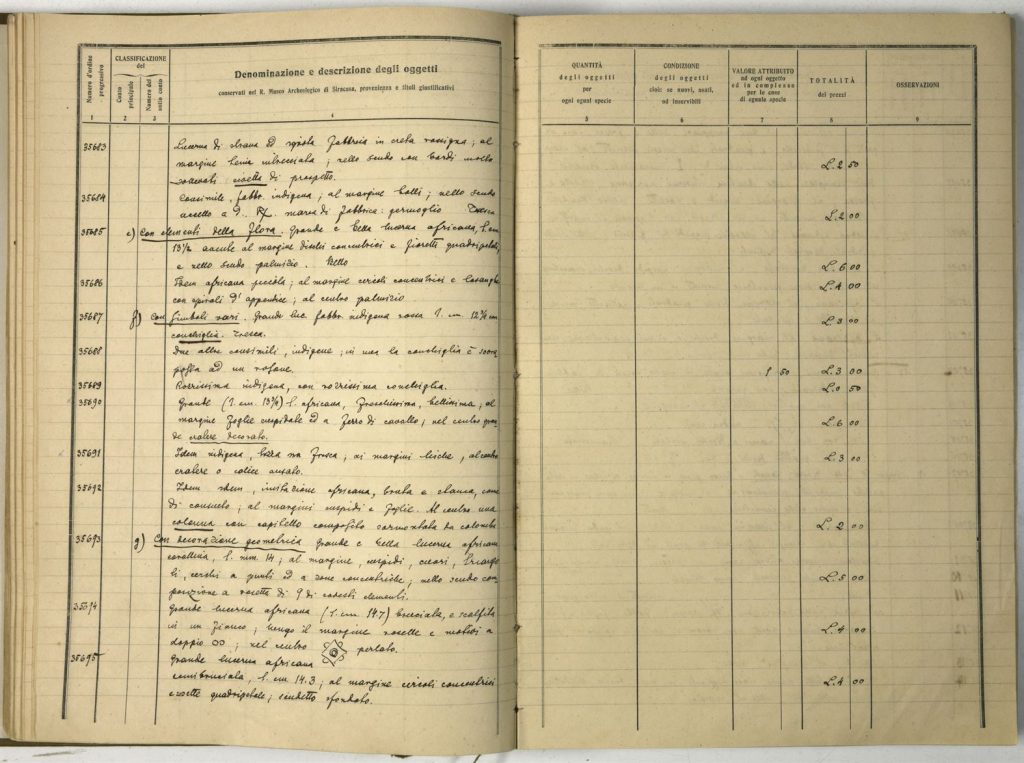 Numero d'ordine progressivo
CLASSIFICAZIONE del
Conto principale
Numero del sotto conto
Denominazione e descrizione degli oggetti
conservati nel R. Museo Archeologico di Siracusa, provenienza e titoli giustificativi
1 2 3 4
35683 Lucerna di strana ed ignota fabbrica in creta rossigna; al
margine lenia intrecciata; nello scudo con bordi molto
rosetta di prospetto. L. 2 50
35684 Consimile, fabbr. indigena; al margine bolli; nello scudo
uccello a D. marca di fabbrica: germoglio Fresca L. 2 00
35685 e) Con elementi della flora. Grande e bella lucerna africana, l. cm
13½ avente al margine dischi concentrici e fioretti quadripetali,
e nello scudo palmizio. Bello L. 6 00
35686 Idem africana piccola; al margine circoli concentrici e losanghe
con spirali d'appendice; al centro palmizio. L. 4 00
35687 f) Con simboli vari. Grande luc. fabbr. indigena rossa l. cm. 12½ con
conchiglia. Fresca. L. 3 00
35688 Due altre consimili, indigene; in una la conchiglia è sovra-
posta ad un 1 50 L. 3 00
35689 Rozzissima indigena, con rozzissima conchiglia. L. 0 50
35690 Grande (l. cm. 13¾) l. africana, freschissima, bellissima; al
margine foglie cuspidate ed a ferro di cavallo; nel centro gran-
de cratere decorato. L. 6 00
35691 Idem indigena, ma fresca; ai margini al centro
cratere o calice ansato. L. 3 00
35692 Idem idem, imitazione africana, brutta e stanca, come
di consueto; ai margini cuspidi e foglie. Al centro una
colonna con capitello composito sormontata da colomba L. 2 00
35693 g) Con decorazione geometrica Grande e bella lucerna africana
corallina, l. mm. 14; al margine, cuspidi, cuori,
cerchi a punti ed a zone concentriche; nello scudo com-
posizione a rosetta di 9 di codesti elementi. L. 5 00
35694 Grande lucerna africana (l. cm 14.7) bruciata, e scalfita
in un fianco; lungo il margine rosette e motivi a
doppio ∞; nel centro perlato. L. 4 00
35695 Grande lucerna africana
semibruciata, l. cm 14.3; al margine circoli concentrici
e rosette quadripetale; scudetto sfondato. L. 4 00
QUANTITÀ degli oggetti per ogni ogni specie
CONDIZIONE degli oggetti cioè: se nuovi, usati, od inservibili
VALORE ATTRIBUITO ad ogni oggetto ed in complesso per le cose di eguale specie
TOTALITÀ dei prezzi
OSSERVAZIONI
5 6 7 8 9